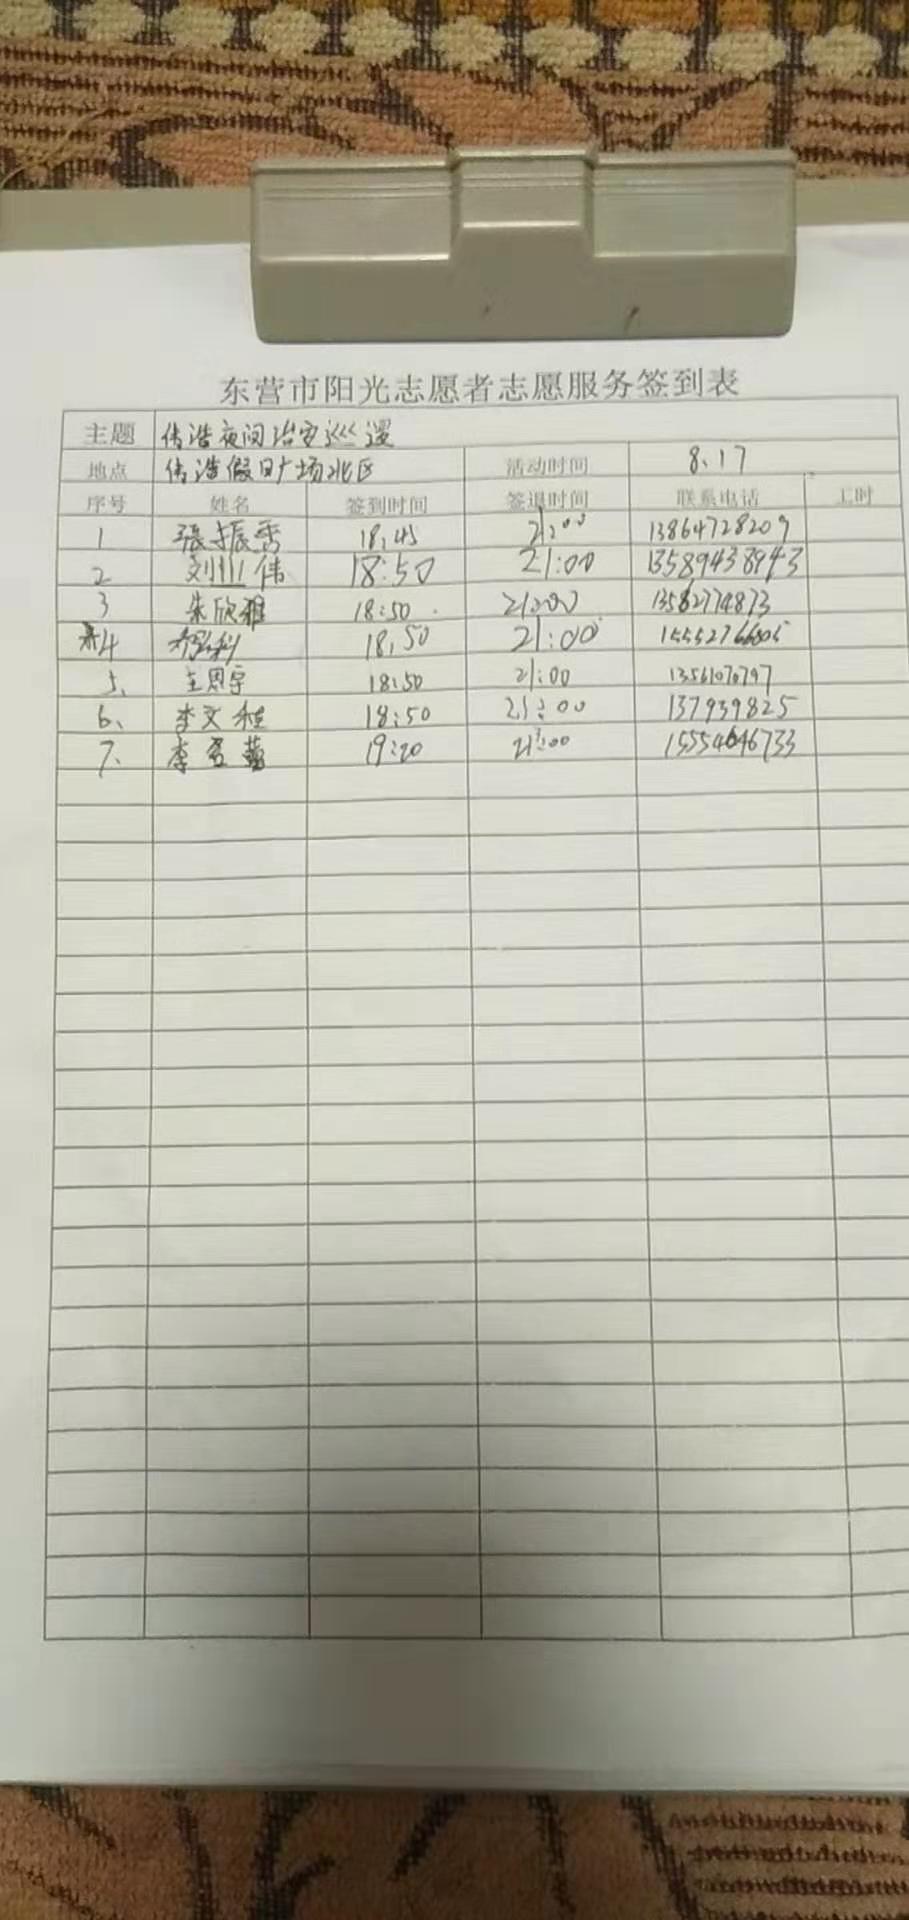 东营市阳光志愿者志愿服务签到表
主题 伟浩夜间治安巡逻
地点 伟浩假日广场北区 活动时间 8.17
序号 姓名 签到时间 签退时间 联系电话 工时
1 張振秀 18:45 21:00 13864728209
2 刘川伟 18:50 21:00 13589438943
3 朱欣雅 18:50 21:00 13562774873
4 18:50 21:00
5、 王思宇 18:50 21:00 13561070797
6、 李文 18:50 21:00 137939825
7、 李 19:20 21:00 15554646733